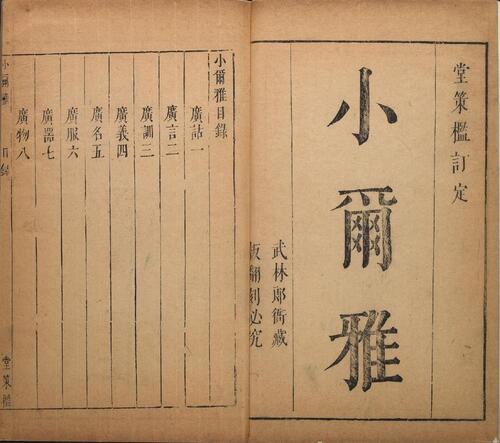 堂策檻訂定
小爾雅
武林郎衙藏
板翻刻必究
小爾雅目錄
廣詁一
廣言二
廣訓三
廣義四
廣名五
廣服六
廣器七
廣物八
小爾雅
目錄
堂策檻